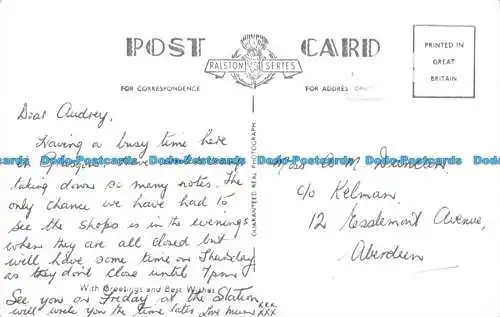 POST CARD
RALSTON SERIES
FOR CORRESPONDENCE
FOR ADDRESS ONLY
PRINTED IN
GREAT
BRITAIN
GUARANTEED REAL PHOTOGRAPH
Dear Audrey,
Having a busy time here
in Glasgow, have
taking down so many notes. The
only chance we have had to
see the shops is in the evenings
when they are all closed but
will have some time on Thursday
as they don't close until 7pm.
With Greetings and Best Wishes
See you on Friday at the Station
will write you the time later Love Mum xxx
xxx
Miss A. M. Duncan,
c/o Kelman,
12 Esslemont Avenue,
Aberdeen
Dodo-Postcards.com Dodo-Postcards.com Dodo-Postcards.com Dodo-Postcards.com